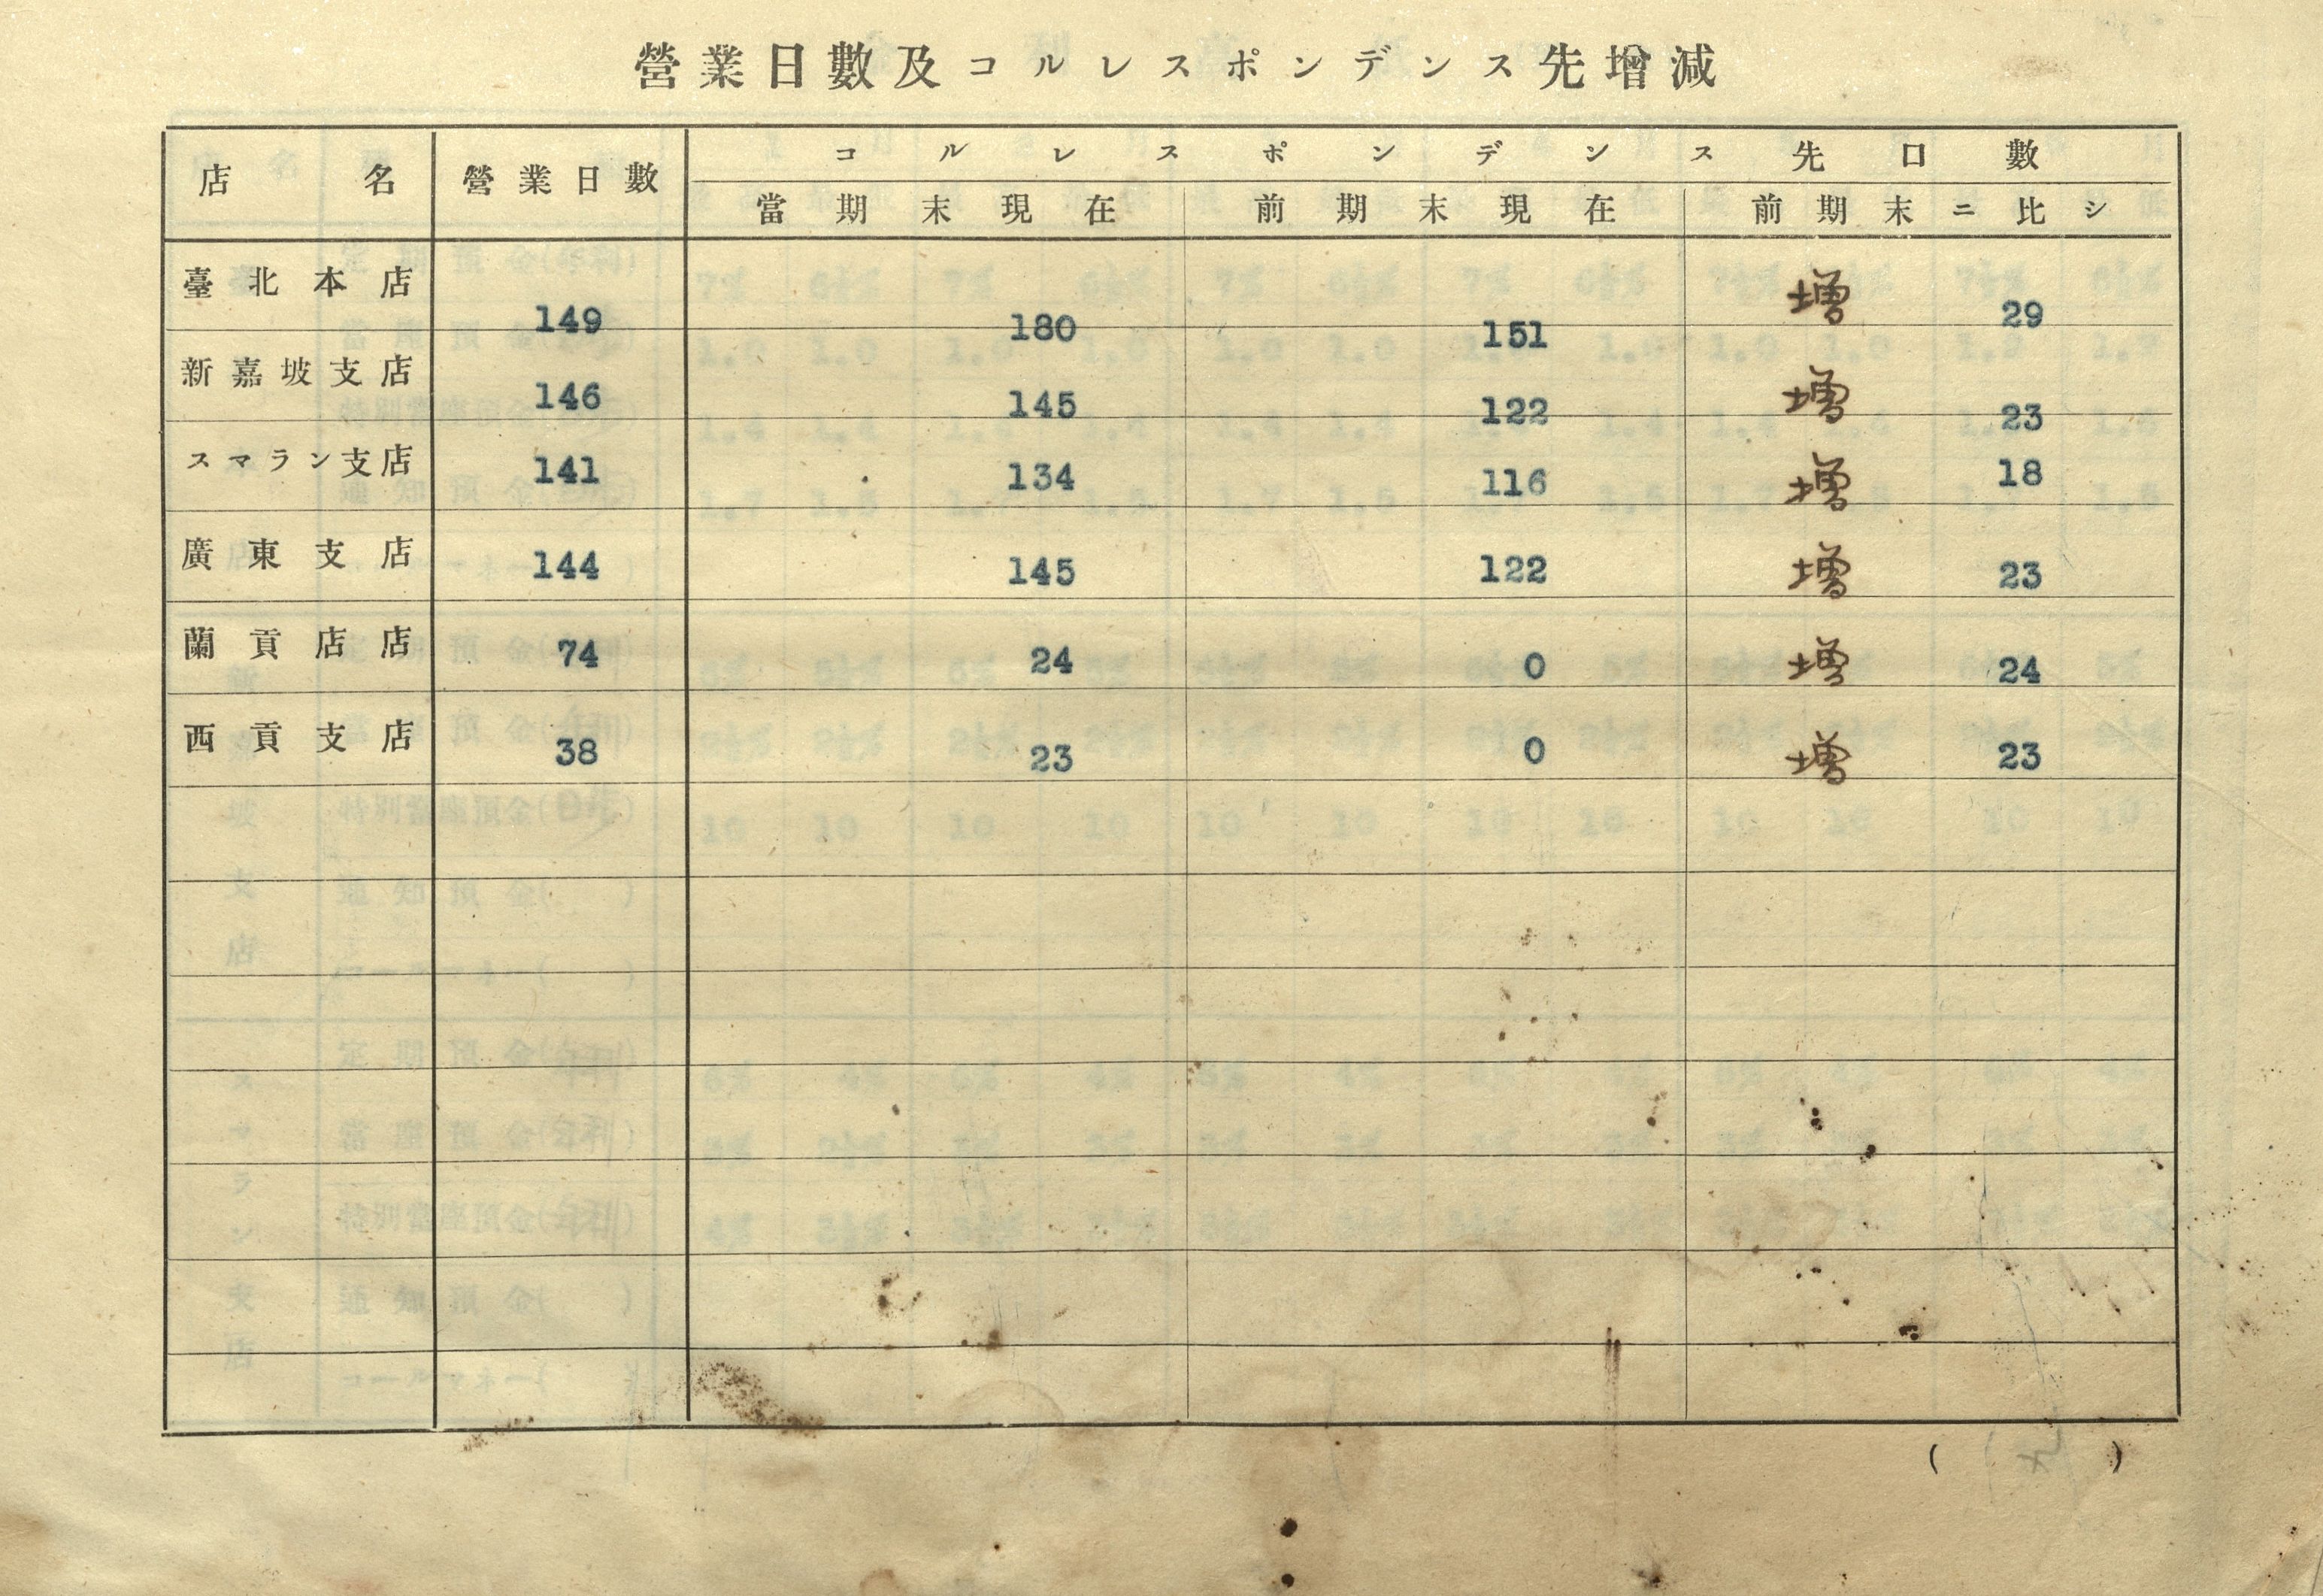 營業日數及コルレスポンデンス先增減
店名 營業日數 コルレスポンデンス先口數
當期末現在 前期末現在 前期末ニ比シ
臺北本店 149 180 151 増 29
新嘉坡支店 146 145 122 増 23
スマラン支店 141 134 116 増 18
廣東支店 144 145 122 増 23
蘭貢店店 74 24 0 増 24
西貢支店 38 23 0 増 23
( )